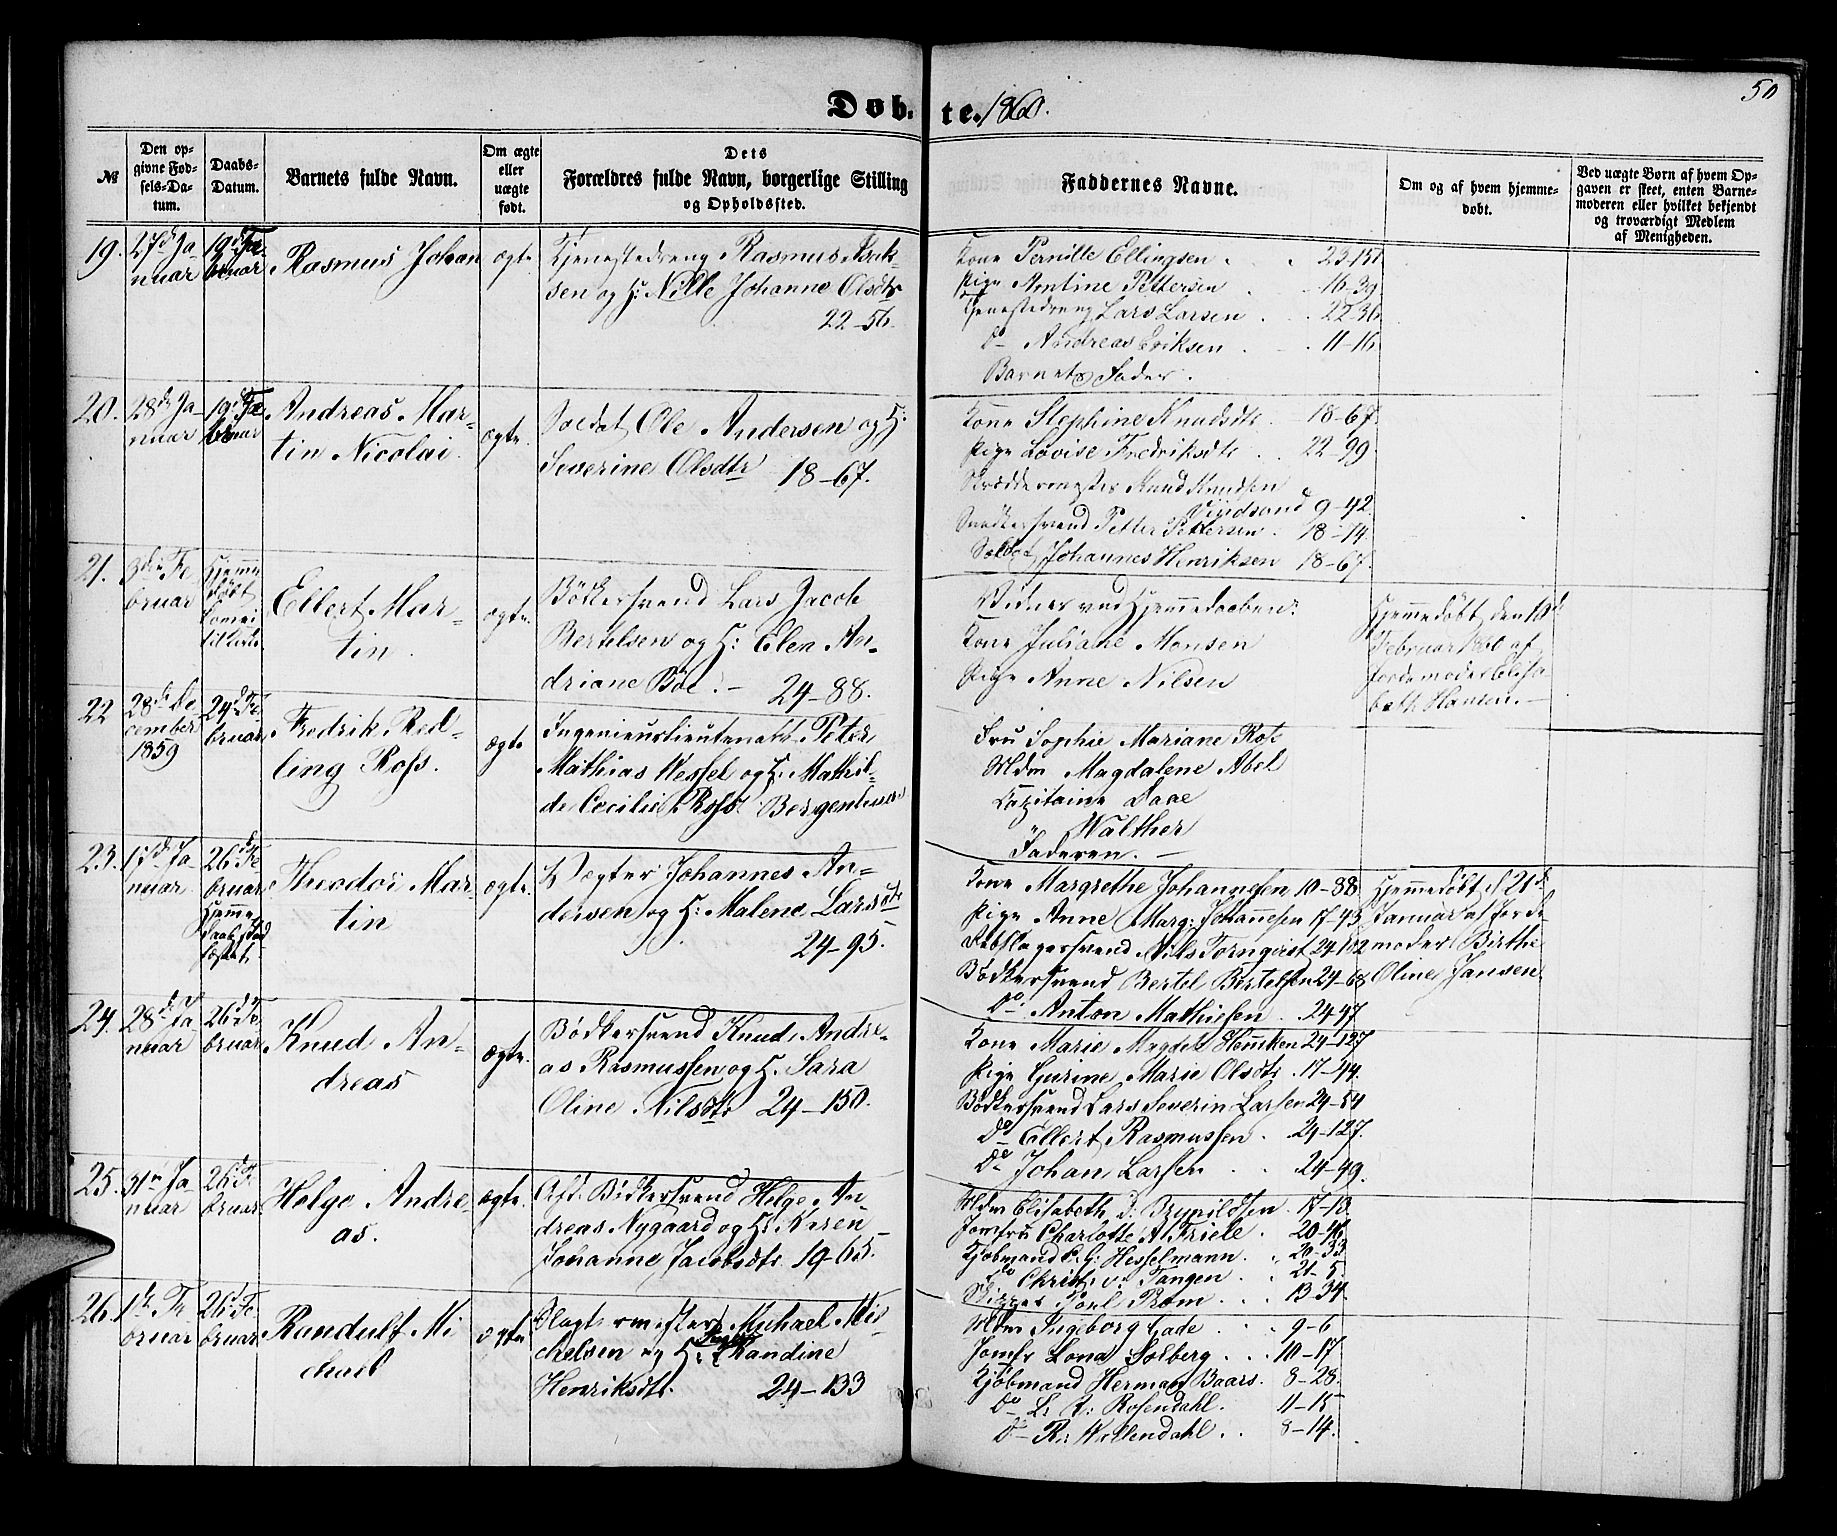 50
Døbte. 1860.
№
Den opgivne Fødsels-Datum.
Daabs-Datum.
Barnets fulde Navn.
Om ægte eller uægte født.
Dets Forældres fulde Navn, borgerlige Stilling og Opholdssted.
Faddernes Navne.
Om og af hvem hjemmedøbt.
Ved uægte Børn af hvem Opgaven er skeet, enten Barnemoderen eller hvilket bekjendt og troværdigt Medlem af Menigheden.
19. 27de Januar 19de Februar Rasmus Johan ægte
Tjenestedreng Rasmus
sen og H: Nille Johanne Olsdtr
22-56.
Kone Pernille Ellingsen
Pige Antine Pettersen 16-39
Tjenestedreng Lars Larsen 22-36
Do Andreas Eriksen 11-16
Barnets Fader.
20. 28de Januar 19de Februar Andreas Martin Nicolai ægte.
Soldat Ole Andersen og H:
Severine Olsdtr 18-67.
Kone Stephine Knudsdtr 18-67.
Pige Lovise Fredriksdtr 22-99
Skræddermester Knud Knudsen
Vindsand 9-42
Snedkersvend Petter Pettersen 18-14
Soldat Johannes Henriksen 18-67
21. 3die Februar Hjemmedøbt
Ellert Martin ægte.
Bødkersvend Lars Jacob
Bertelsen og H: Elen An-
driane Böe.- 24-88.
Vidner ved Hjemmedaaben:
Kone Juliane Monsen
Pige Anne Nilsen
Hjemmedøbt den 10de
Februar 1860 af
Jordemoder Elisa
beth Hansen.-
22 28de December 1859 24de Februar Fredrik Redling Ross. ægte
Ingenieurlieutenant Peter
Mathias Wessel og H: Mathil-
de Cecilie Ross. Bergenhuus
Fru Sophie Mariane
Mdm Magdalene Abel
Capitaine Daae
" Walther
Faderen.-
23. 17de Januar 26de Februar Hjemmedaab stadfæstet.
Theodor Martin ægte.
Vægter Johannes An-
dersen og H: Malene Larsdtr
24-95.
Kone Margrethe Johannesen 10-88
Pige Anne Marg: Johannesen 17-43
Rebslagersvend Nils Tornqvist 24-152
Bødkersvend Bertel Bertelsen 24-68
Do Anton Mathiesen 24-97
Hjemmedøbt d 21de
Januar af Jorde
moder Birthe
Oline Jansen
24. 28de Januar 26de Februar Knud Andreas ægte.
Bødkersvend Knud Andre-
as Rasmussen og H. Sara
Oline Nilsdtr 24-150.
Kone Marie Magdel: Hamken 24-127
Pige Gurine Marie Olsdtr 17-44.
Bødkersvend Lars Severin Larsen 24-54
Do Ellert Rasmussen 24-127.
Do Johan Larsen 24-49.
25. 31te Januar 26de Februar Helge Andreas. ægte.
Afd. Bødkersvend Helge An-
dreas Nygaard og H: Karen
Johanne Jacobsdtr. 19-65.
Mdm Elisabeth D: Brynildsen 17-13.
Jomfru Charlotte A Friele 20-46
Kjøbmand C. G: Hesselmann 20-33
Do Christ: v: Tangen 21-5
Skipper Poul Prom 13-34.
26. 1ste Februar 26de Februar Randulf Michael ægte
Slagtermester Michael Mi-
chelsen og H: Randine
Henriksdtr. 24-133
Mdm Ingeborg Gade 9-6
Jomfr Lona Solberg 10-17
Kjøbmand Herman Baars 8-28.
Do L: A: Rosendahl. 11-15
Do R: Wallendahl. 8-14.